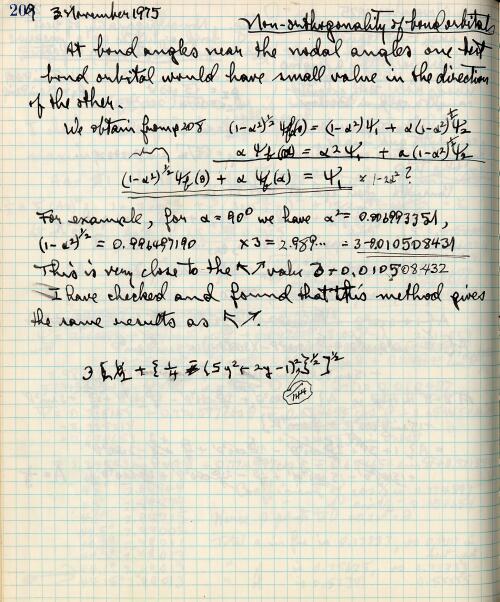 209 3 November 1975
Non-orthogonality of bond orbitals
At bond angles near the nodal angles one test
bond orbital would have small value in the direction
of the other.
We obtain from p 208 (1-α²)^½ Ψf(0) = (1-α²)Ψ₁ + α(1-α²)^½Ψ₂
α Ψf(α) = α²Ψ₁ + α(1-α²)^½Ψ₂
(1-α²)^½ Ψf(0) + α Ψf(α) = Ψ₁ × 1-2α² ?
For example, for α = 90° we have α² = 0.006993351,
(1-α²)^½ = 0.996497190 ×3 = 2.989... = 3-0.010508431
This is very close to the ↖↗ value 3-0.010508432
I have checked and found that this method gives
the same results as ↖↗.
3 [½ + {¼ - (5y²+2y-1)²}^½]^½
144